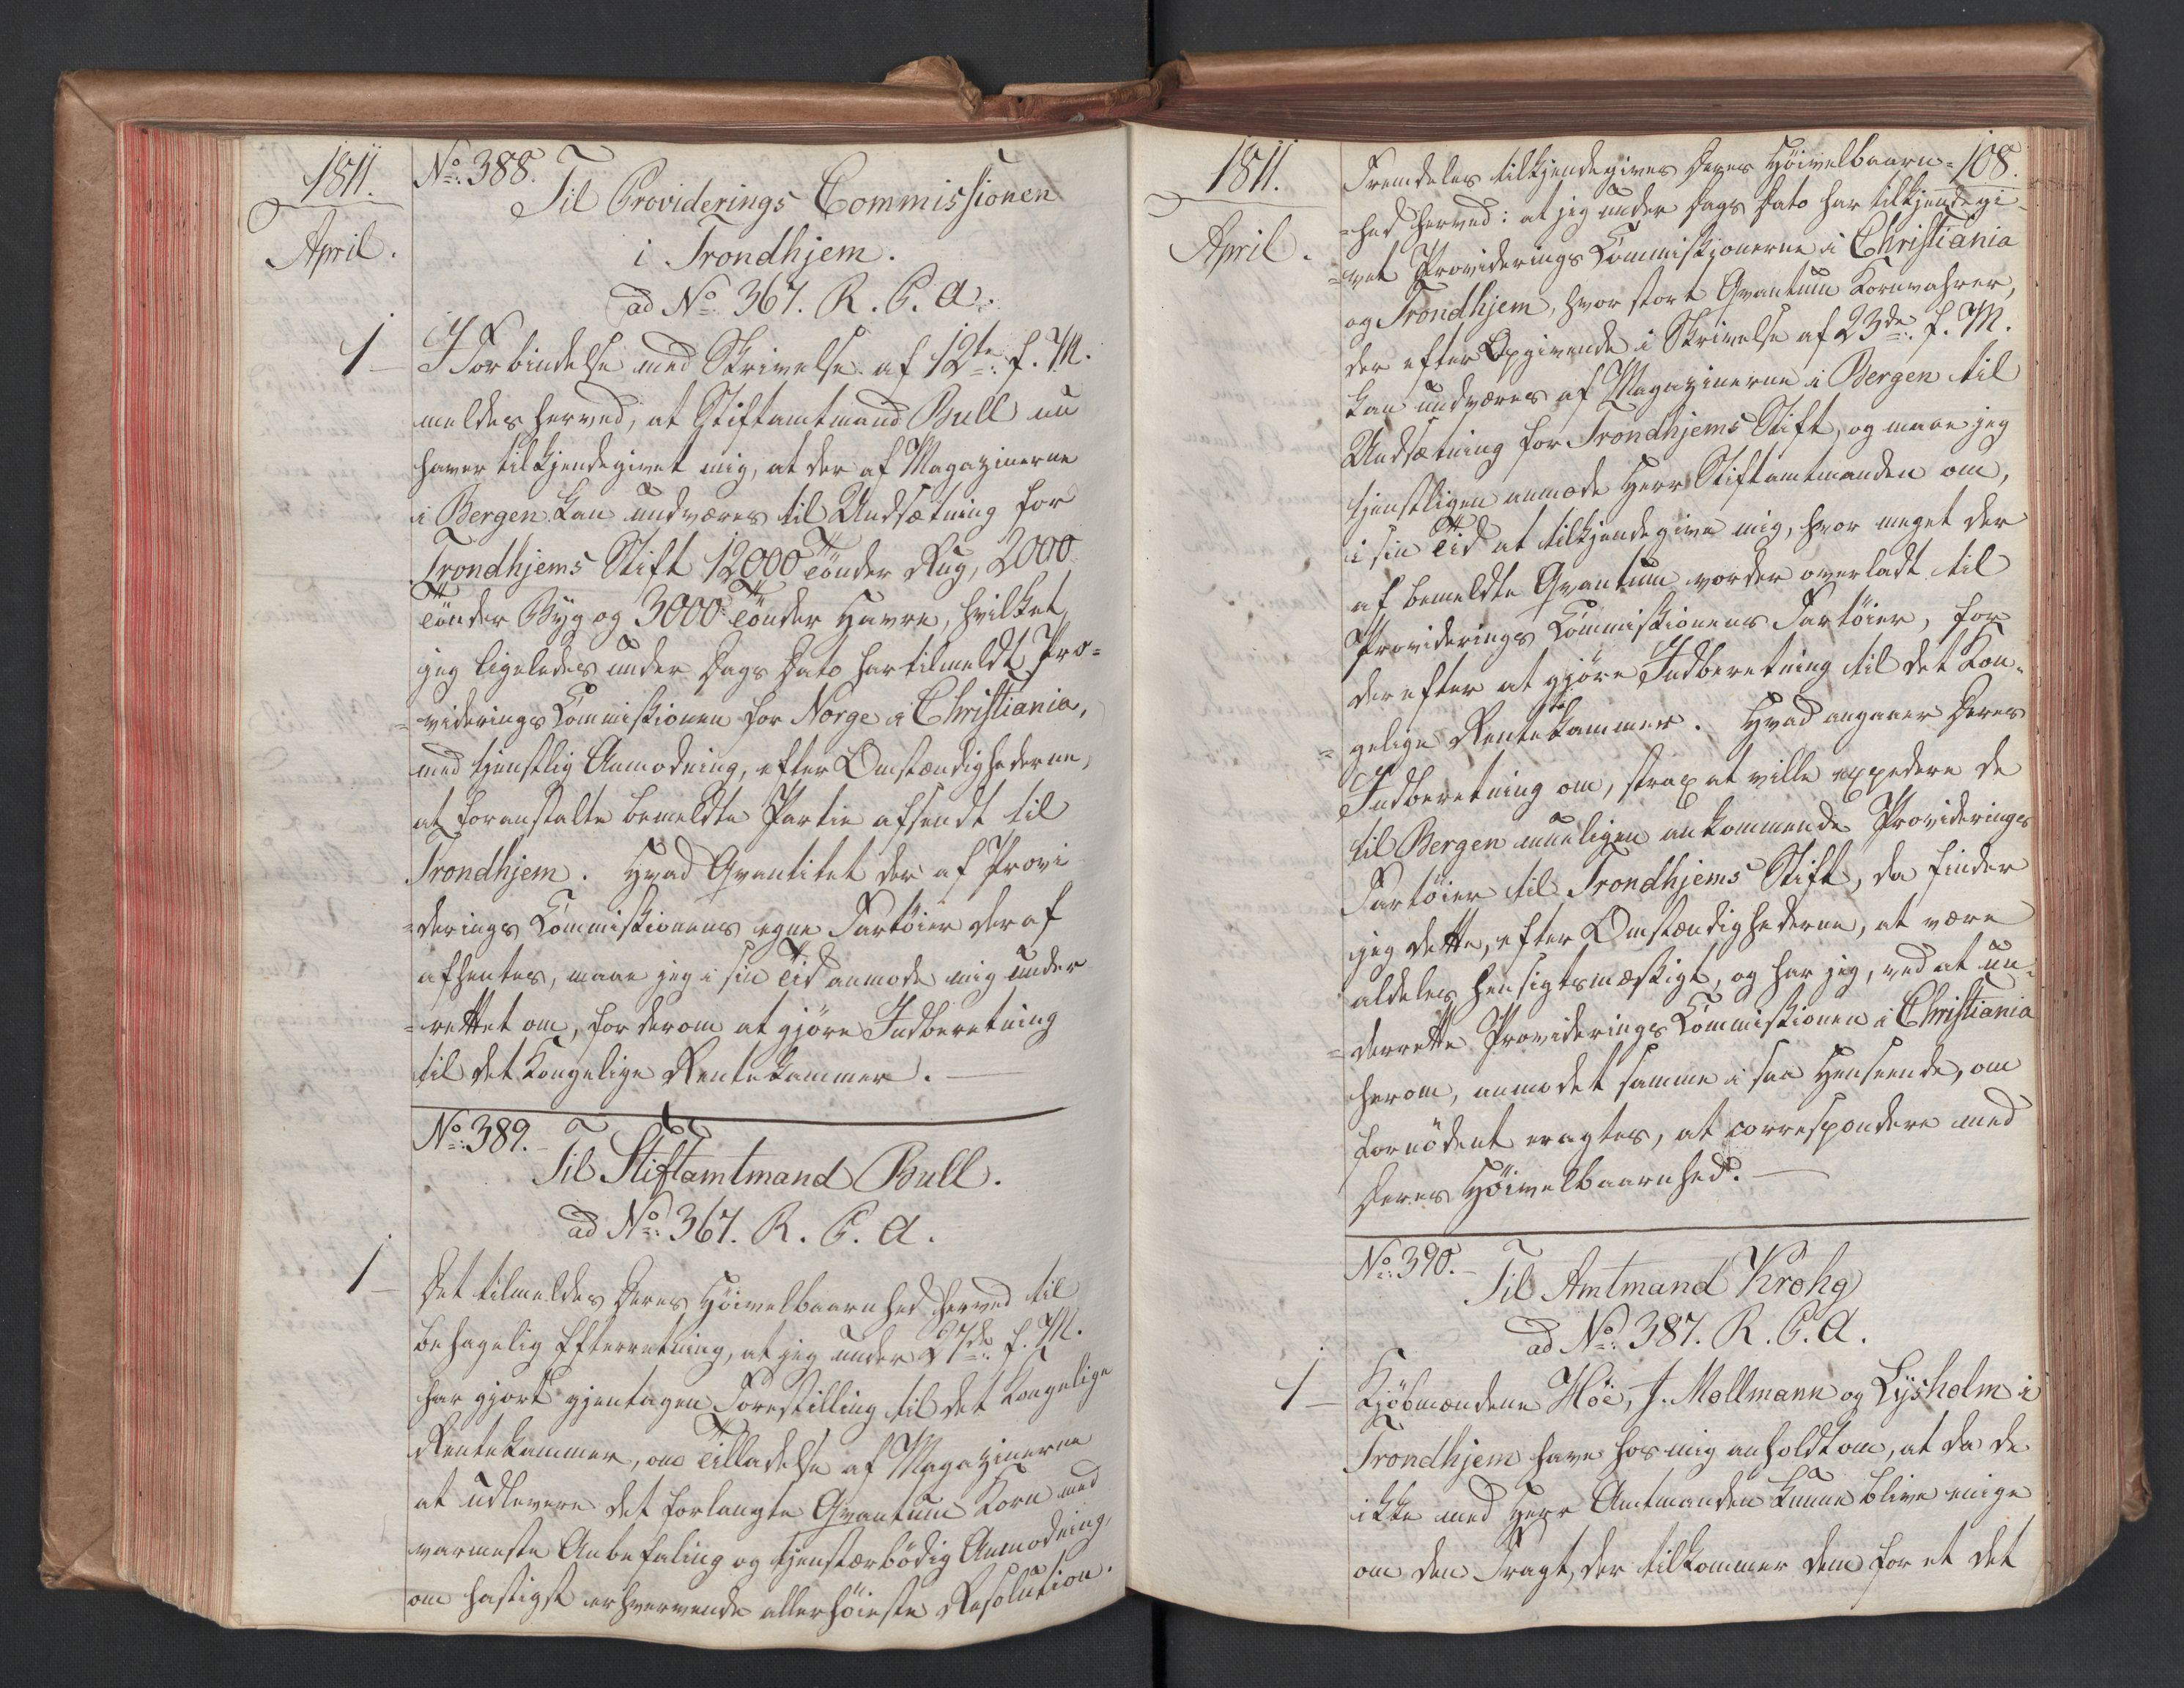 1811.
April.
No: 388.
Til Providerings Commissionen
i Trondhjem.
ad No: 367. R. P. A.
1 –
I Forbindelse med Skrivelse af 12te f. M.
meldes herved, at Stiftamtmand Bull nu
haver tilkjendegivet mig, at der af Magazinerne
i Bergen kan undværes til Undsætning for
Trondhjems Stift 12000 Tönder Rug, 2000
Tönder Byg og 3000 Tönder Havre, hvilket
jeg ligeledes under Dags Dato har tilmeldt Pro=
=viderings Commissionen for Norge i Christiania,
med tjenstlig Anmodning, efter Omstændighederne,
at foranstalte bemeldte Partie afsendt til
Trondhjem. Hvad Qvantitet der af Provi
=derings Commissionens egne Fartöier deraf
afhentes, maae jeg i sin Tid anmode mig under
=rettet om, for derom at gjöre Indberetning
til det Kongelige Rentekammer. —
No: 389. –
Til Stiftamtmand Bull.
ad No: 367. R. P. A.
1 –
Det tilmeldes Deres Höivelbaarnhed herved til
behagelig Efterretning, at jeg under 27de f. M.
har gjort gjentagen Forestilling til det Kongelige
Rentekammer, om Tilladelse af Magazinerne
at udlevere det forlangte Qvantum Korn med
varmeste Anbefaling og tjenstærbödig Anmodning,
om hastigst erhvervende allerhöieste Resolution.
1811.
April.
108.
Fremdeles tilkjendegives Deres Höivelbaarn=
=hed herved: at jeg under Dags Dato har tilkjendegi=
=vet Providerings Commissionerne i Christiania
og Trondhjem, hvor stort Qvantum Kornvahrer,
der efter Opgivende i Skrivelse af 23de f. M.
kan undværes af Magazinerne i Bergen til
Undsætning for Trondhjems Stift, og maae jeg
tjenstligen anmode Herr Stiftamtmanden om,
i sin Tid at tilkjendegive mig, hvor meget der
af bemeldte Qvantum vorder overladt til
Providerings Commissionens Fartöier, for
derefter at gjöre Indberetning til det Kon=
=gelige Rentekammer. Hvad angaaer Deres
Indberetning om, strax at ville expedere de
til Bergen mueligen ankommende Providerings
Fartöier til Trondhjems Stift, da finder
jeg dette, efter Omstændighederne, at være
aldeles hensigtsmæssigt, og har jeg, ved at un=
=derrette Providerings Commissionen i Christiania
herom, anmodet samme i saa Henseende, om
fornödent eragtes, at correspondere med
Deres Höivelbaarnhed. —
No: 390. –
Til Amtmand Krohg
ad No: 387. R. P. A.
1 –
Kjöbmændene Höe, J. Mollmann og Lysholm i
Trondhjem have hos mig anholdt om, at da de
ikke med Herr Amtmanden kunne blive enige
om den Fragt, der tilkommer dem for et det